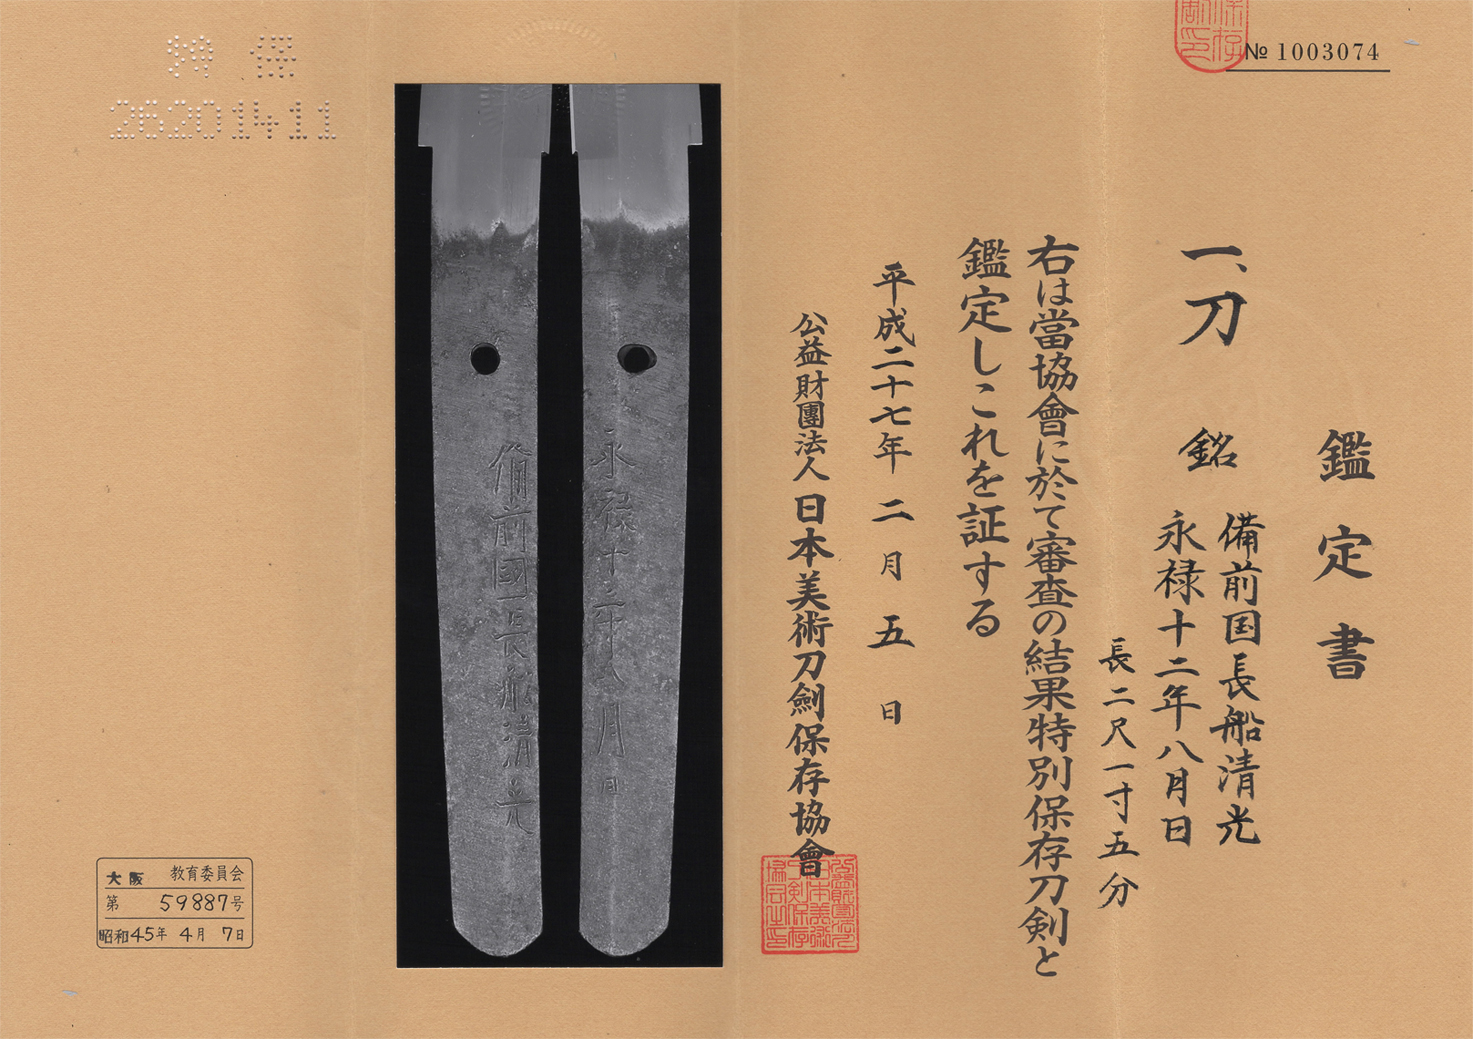 № 1003074
鑑定書
一、刀 銘 備前国長船清光
永禄十二年八月日
長二尺一寸五分
右は當協會に於て審査の結果特別保存刀剣と
鑑定しこれを証する
平成二十七年二月五日
公益財團法人日本美術刀劍保存協會
永禄十二年八月日
備前國長船清光
特保
26201411
大阪 教育委員会
第 59887号
昭和45年 4月 7日